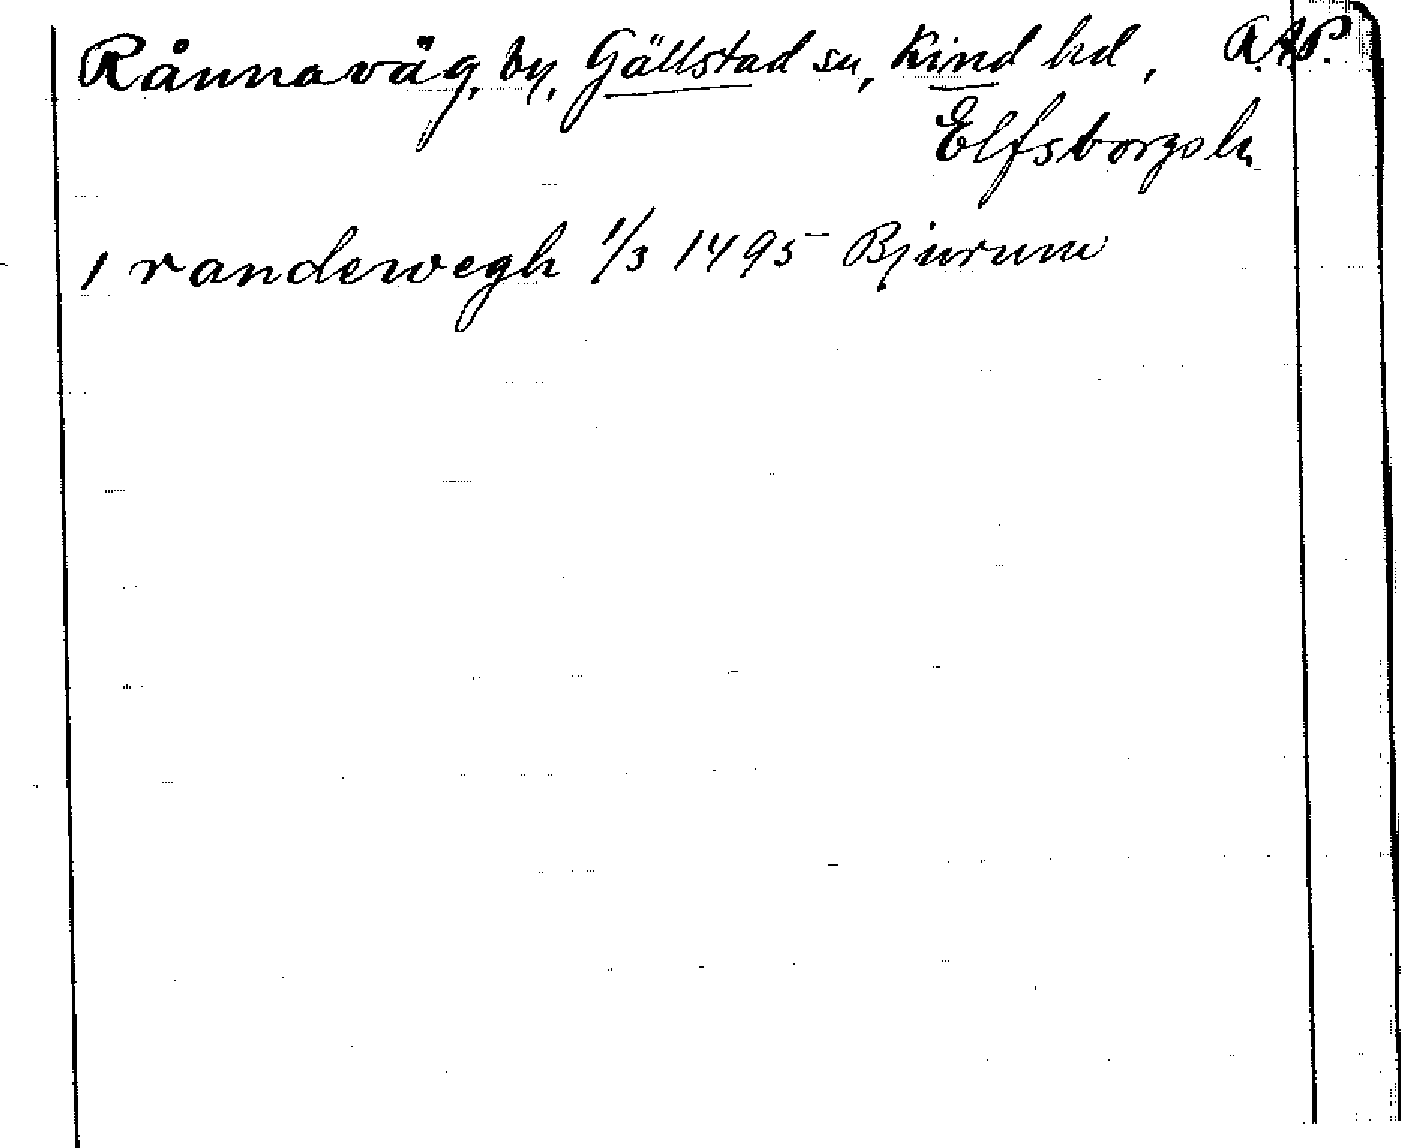 Rånnaväg, by, Gällstad sn, Kind hd, R.A.P.
Elfsborgs ln
1 randewegh 1/3 1495 Bjurum